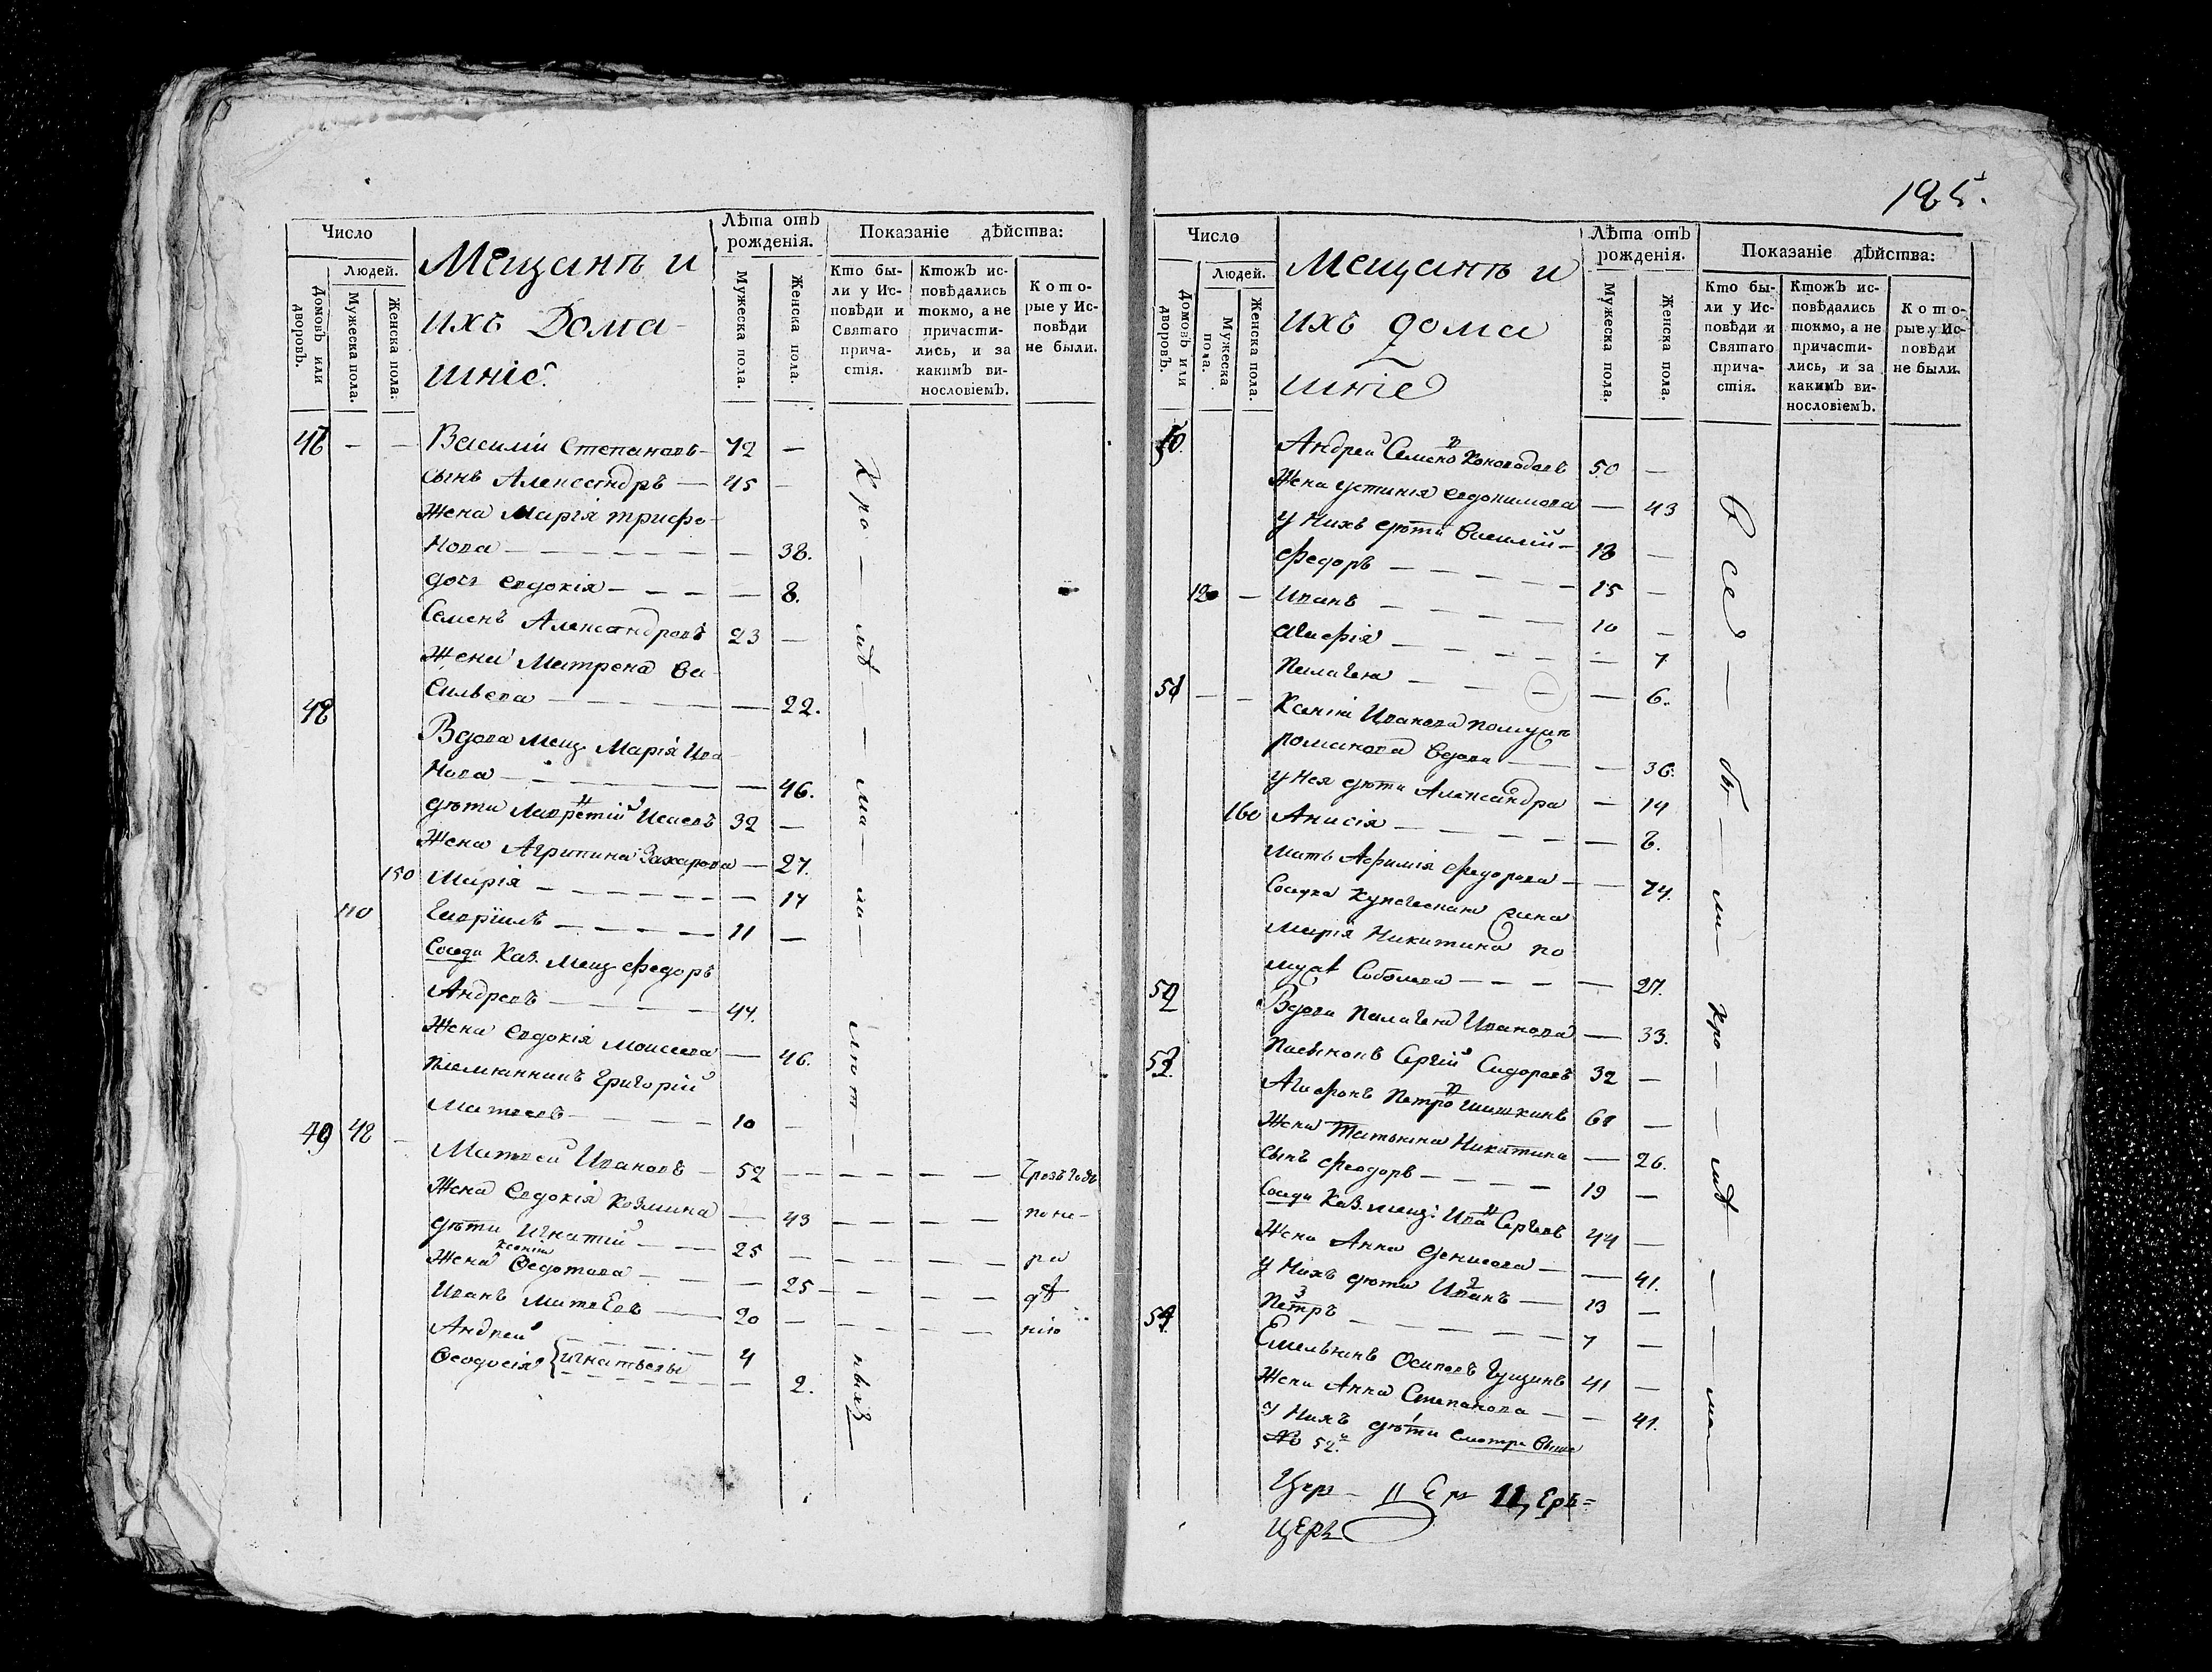 Число
Людей.
Домовъ или дворовъ.
Мужеска пола.
Женска пола.
Мещанъ и
ихъ Дома-
шніе.
Лѣта отъ
рожденія.
Мужеска пола.
Женска пола.
Показаніе дѣйства:
Кто бы-
ли у Ис-
повѣди и
Святаго
прича-
стія.
Ктожъ ис-
повѣдались
токмо, а не
причасти-
лись, и за
какимъ ви-
нословіемъ.
Кото-
рые у Ис-
повѣди
не были.
Василій Степановъ — 72 —
сынъ Александръ — 45 —
Жена Марія трифо-
нова — — 38.
дочь Евдокія — — 8.
Семенъ Александровъ 23 —
Жена Матрена Ва-
сильева — — 22.
48
Вдова мещ. Марія Ива-
нова — — 46.
дѣти Исаевъ 32 —
Жена Агрипина Захарова — 27.
150 Марія — — 14
Гаврїилъ — 11 —
Соседи Каз. Мещ. Федоръ
Андреевъ — 44.
Жена Евдокія Моисеева — 46.
племянникъ Григорій
Матвеевъ — 10 —
49 48 —
Матвей Ивановъ — 52 — чрезъ годъ
Жена Евдокія Козмина — 43 — по не-
дѣти Игнатій — 25 — ра
Ксенія
Жена Ѳедотова — — 25 — дѣ
Иванъ Матвѣевъ — 20 — нію
Андрей — 4
Ѳеодосія } Игнатьевы — 2.
Кро — мѣ — ма — ло — лѣт — ныхъ
185.
Число
Людей.
Домовъ или дворовъ.
Мужеска пола.
Женска пола.
Мещанъ и
ихъ дома
шніе
Лѣта отъ
рожденія.
Мужеска пола.
Женска пола.
Показаніе дѣйства:
Кто бы-
ли у Ис-
повѣди и
Святаго
прича-
стія.
Ктожъ ис-
повѣдались
токмо, а не
причасти-
лись, и за
какимъ ви-
нословіемъ.
Кото-
рые у Ис-
повѣди
не были.
50.
Андрей Семено Коноводовъ 50 —
Жена Устинія Евдокимова — 43
у Нихъ дѣти Василий — 18 —
Федоръ — 15 —
Иванъ — 10 —
— 7
Пелагея — — 6.
51 — —
Ксенія Иванова по мужѣ
романова вдова — — 36.
у Нея дѣти Александра — 14
160 Анисія — — 8.
мать Афимія Федорова — — 74.
Соседка Купеческая жена
Марія Никитина по
мужѣ Соболева — — 27.
52
Вдова Пелагея Иванова — 33.
Пасынокъ Сергій Сидоровъ 32 —
53.
Агафонъ Петро Шишкинъ —
Жена Татьяна Никитина — 26.
сынъ Феодоръ — 19 —
Соседи Каз. мещ: Ива Сергеевъ 44 —
Жена Анна Денисова — — 41.
у Нихъ дѣти Иванъ — 13 —
Петръ — 7 —
54.
Емельянъ Осиповъ Гущинъ 41 —
Жена Анна Степанова — — 41.
у Нихъ дѣти смотри выше
№ 52.
Церъ
Все — бы — ли — кро — мѣ — ма —